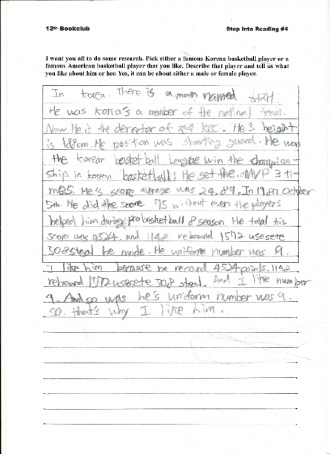 12th Bookclub Step Into Reading #4
I want you all to do some research. Pick either a famous Korean basketball player or a
famous American basketball player that you like. Describe that player and tell us what
you like about him or her. Yes, it can be about either a male or female player.
In Korea. There is a man named 허재.
He was korea's a member of the national team.
Now He is the derector of KCC. He's height
is 188cm. He position was shooting guard. He won
the korean basketball League win the champion-
ship in korea basketball! He set the MVP 3 ti-
mes. He's score average was 24.89. In 1987 October
5th. He did the score 75 without even the players
helped him during pro basketball 8 season. He total his
score was 4524. and 1148 rebound 1572 usesete
308 steal he made. He uniform number was 9.
I like him because he record 4524 points. 1148
rebound 1572 usesete 308 steal. And I like number
9. And so was he's uniform number was 9.
so. that's why I like him.